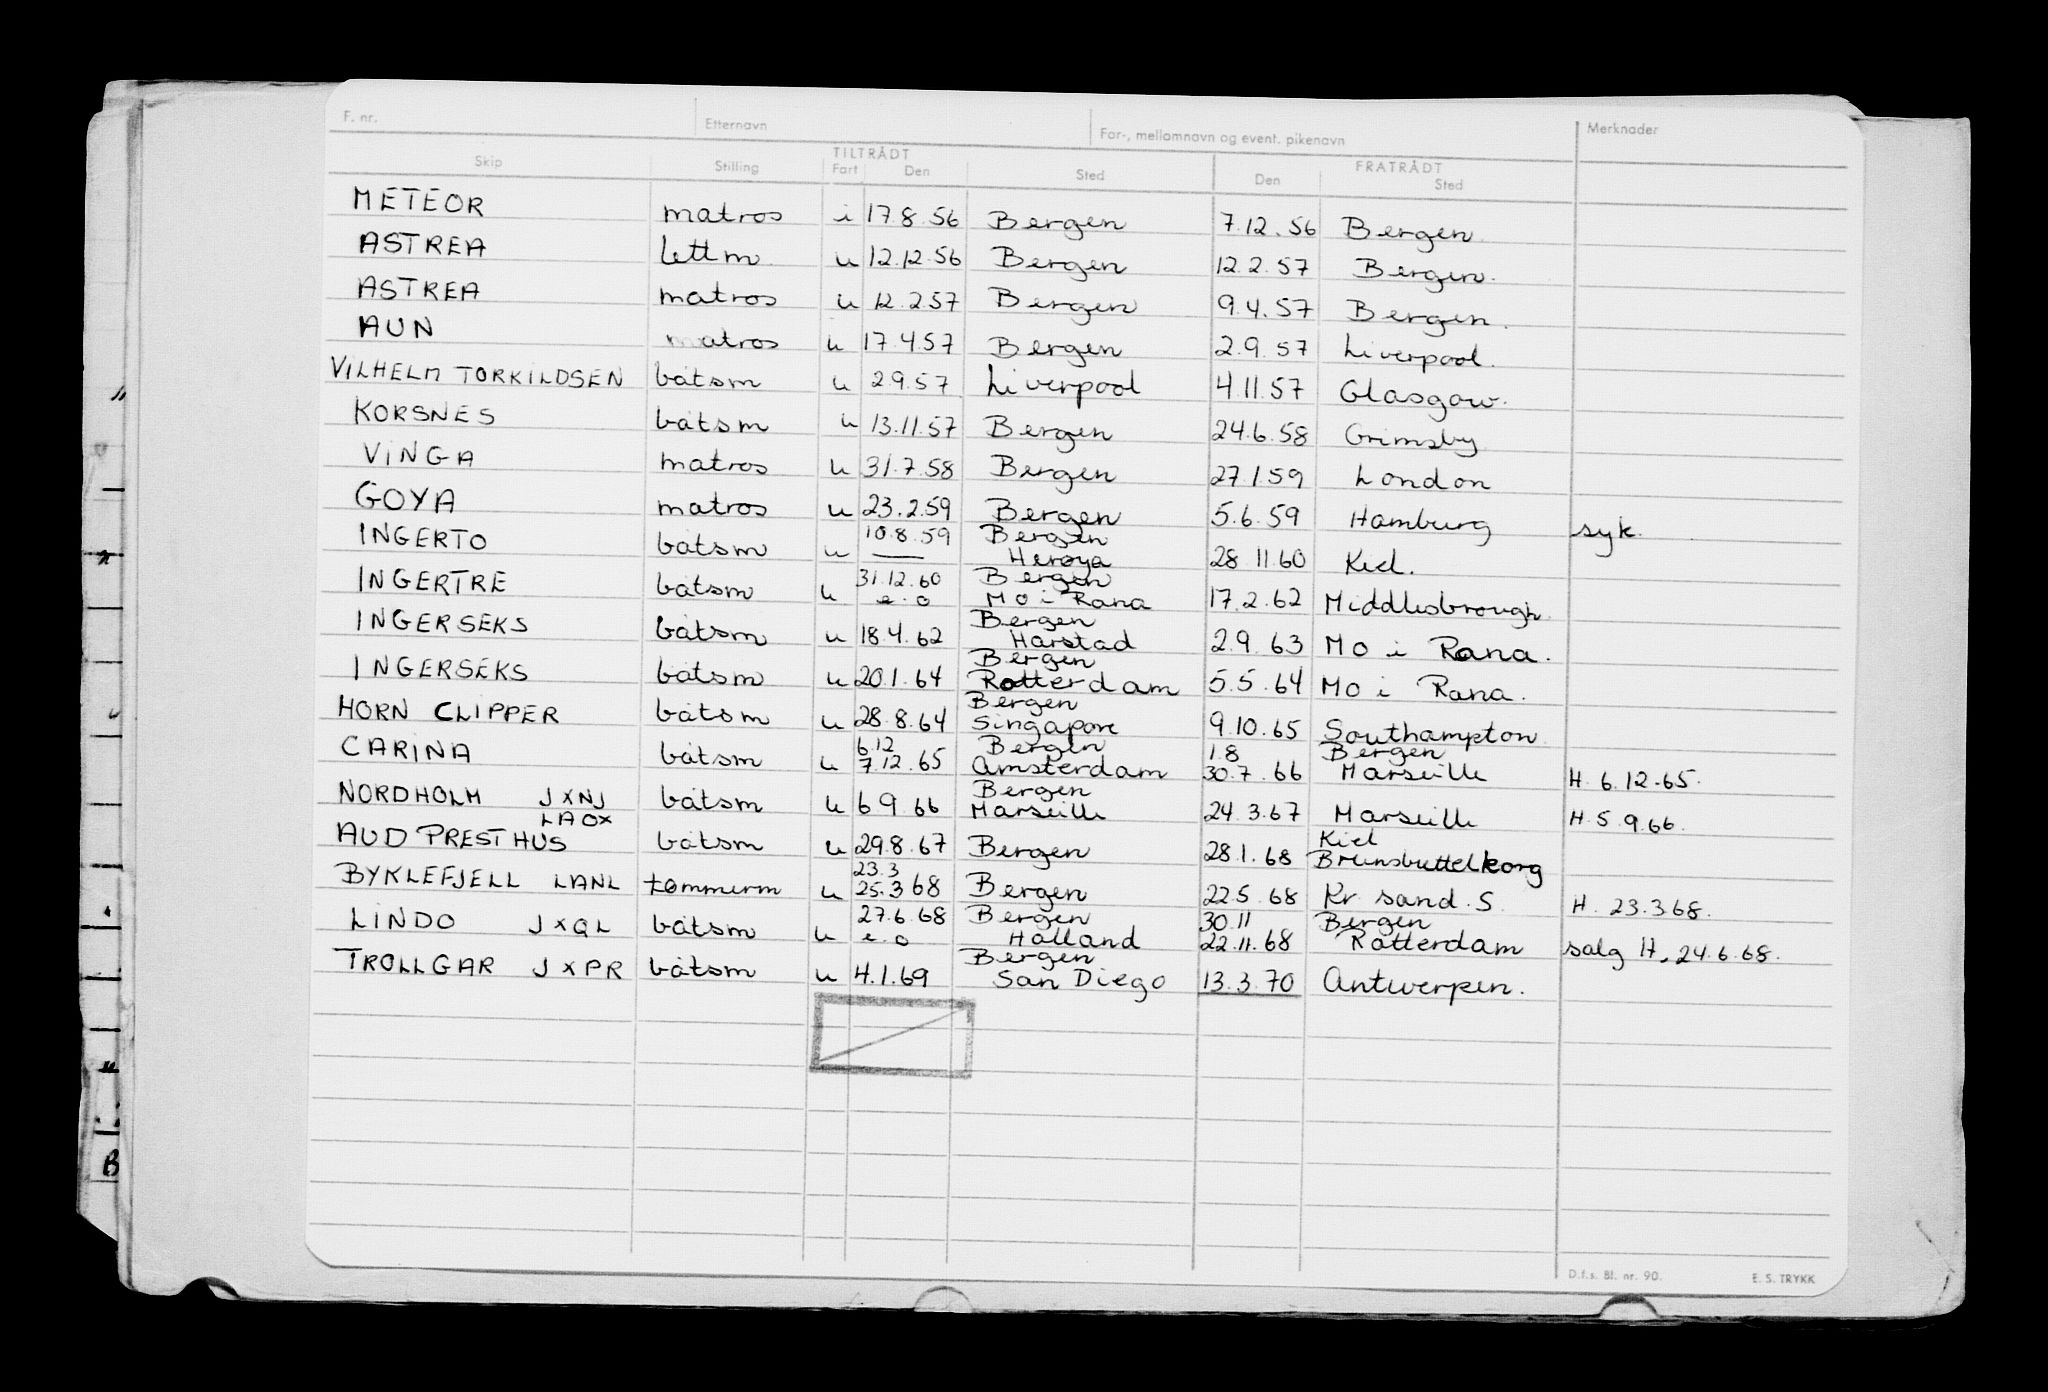 F. nr. Etternavn For-, mellomnavn og event. pikenavn Merknader
TILTRÅDT FRATRÅDT
Skip Stilling Fart Den Sted Den Sted
METEOR matros i 17.8.56 Bergen 7.12.56 Bergen
ASTREA lettm u 12.12.56 Bergen 12.2.57 Bergen.
ASTREA matros u 12.2.57 Bergen 9.4.57 Bergen.
AUN matros u 17.4.57 Bergen 2.9.57 Liverpool.
VILHELM TORKILDSEN båtsm u 2.9.57 Liverpool 4.11.57 Glasgow.
KORSNES båtsm u 13.11.57 Bergen 24.6.58 Grimsby
VINGA matros u 31.7.58 Bergen 27.1.59 London
GOYA matros u 23.2.59 Bergen 5.6.59 Hamburg syk.
10.8.59 Bergen
INGERTO båtsm u — Herøya 28.11.60 Kiel.
31.12.60 Bergen
INGERTRE båtsm u e.o Mo i Rana 17.2.62 Middlesbrough.
Bergen
INGERSEKS båtsm u 18.4.62 Harstad 2.9.63 Mo i Rana.
Bergen
INGERSEKS båtsm u 20.1.64 Rotterdam 5.5.64 Mo i Rana.
Bergen
HORN CLIPPER båtsm u 28.8.64 Singapore 9.10.65 Southampton
6.12 Bergen 1.8 Bergen
CARINA båtsm u 7.12.65 Amsterdam 30.7.66 Marseille H. 6.12.65.
Bergen
NORDHOLM JXNJ båtsm u 6.9.66 Marseille 24.3.67 Marseille H. 5.9.66.
LAOX Kiel
AUD PRESTHUS båtsm u 29.8.67 Bergen 28.1.68 Brunsbuttelkorg
23.3
BYKLEFJELL LANL tømmerm u 25.3.68 Bergen 22.5.68 Kr. sand. S. H. 23.3.68.
27.6.68 Bergen 30.11 Bergen
LINDO JXQL båtsm u e.o Holland 22.11.68 Rotterdam salg H. 24.6.68.
Bergen
TROLLGAR JXPR båtsm u 4.1.69 San Diego 13.3.70 Antwerpen.
D.f.s. Bl. nr. 90. E. S. TRYKK
B